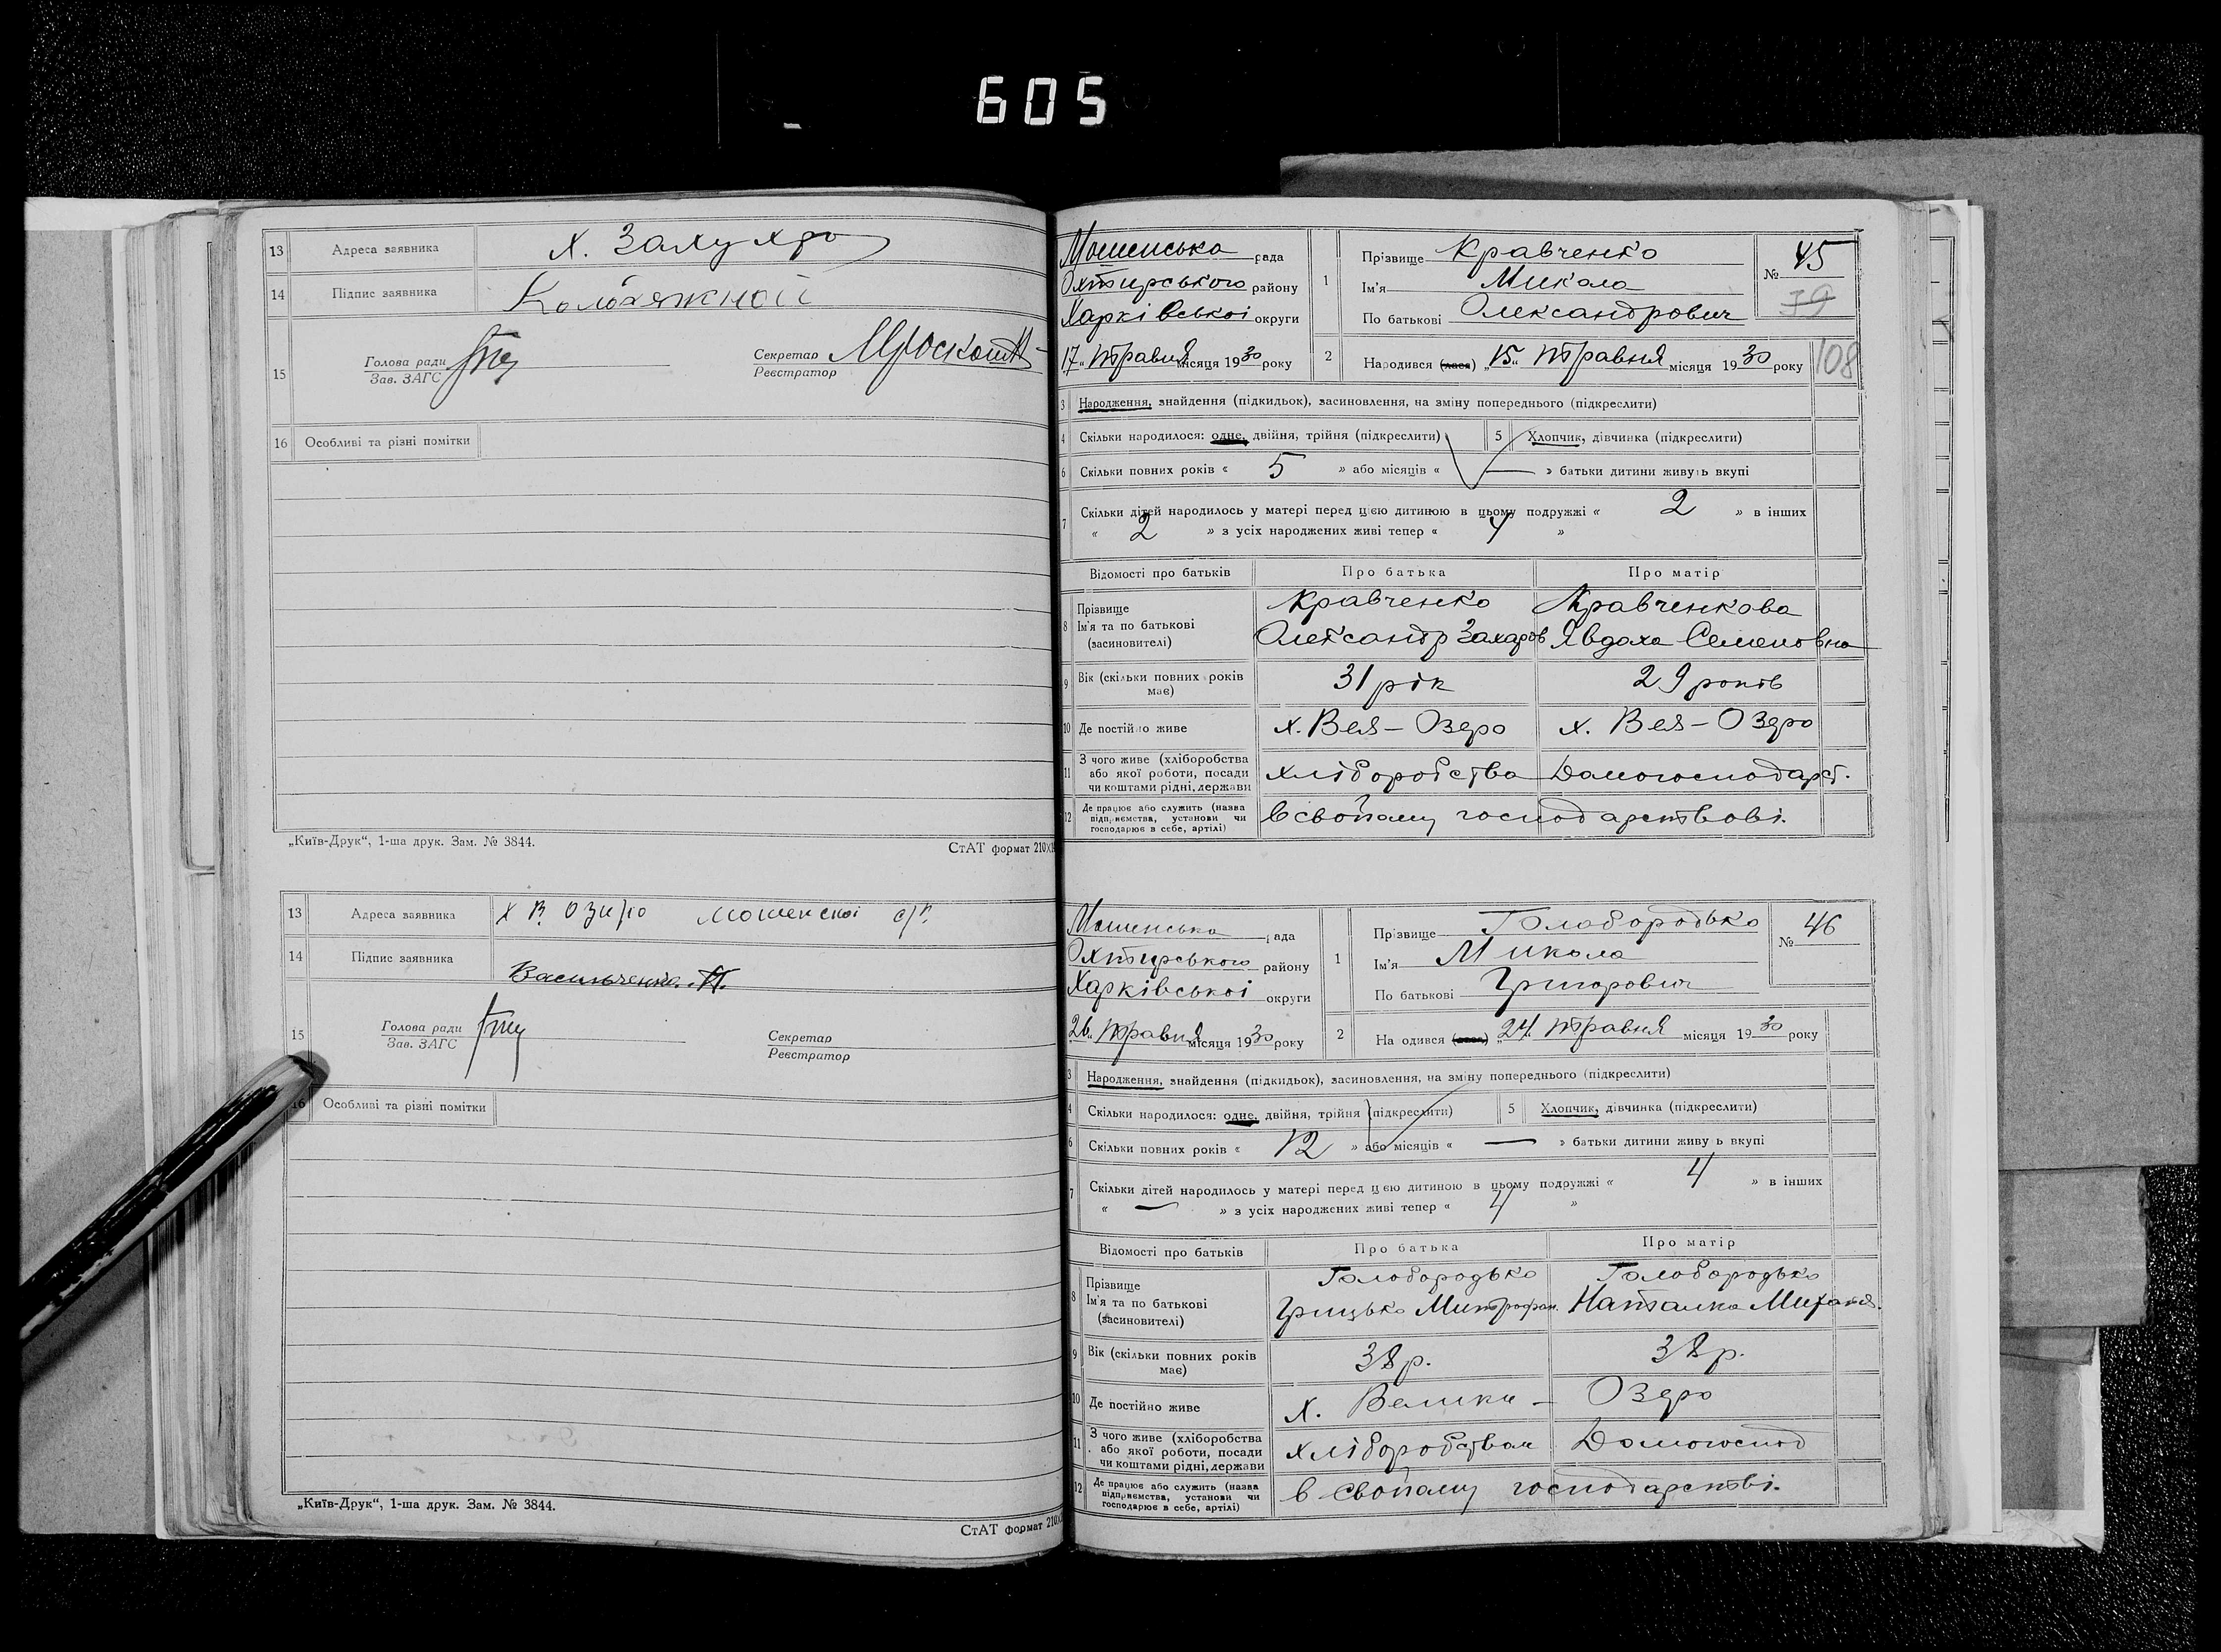 605
13 Адреса заявника х. Залужхро
14 Підпис заявника Колодяжной
15 Голова ради Секретар
Зав. ЗАГС Реєстратор
16 Особливі та різні помітки
„Київ-Друк“, 1-ша друк. Зам. № 3844.
СтАТ формат 210Х
13 Адреса заявника Х В. Озиро мошенскоі с/р.
14 Підпис заявника Васильченко. П.
15 Голова ради Секретар
Зав. ЗАГС Реєстратор
16 Особливі та різні помітки
„Київ-Друк“, 1-ша друк. Зам. № 3844.
СтАТ формат 210
Мошенська рада
Охтирського району
Харківськоі округи
17 „ травня місяця 1930 року
1 Прізвище Кравченко
Ім'я Микола
По батькові Олександрович
№ 45
79
2 Народився (лася) „15“ травня місяця 1930 року 108
3 Народження, знайдення (підкидьок), засиновлення, на зміну попереднього (підкреслити)
4 Скільки народилося: одне, двійня, трійня (підкреслити) 5 Хлопчик, дівчинка (підкреслити)
6 Скільки повних років « 5 » або місяців « — » батьки дитини живуть вкупі
7 Скільки дітей народилось у матері перед цією дитиною в цьому подружжі « 2 » в інших
« 2 » з усіх народжених живі тепер « 4 »
Відомості про батьків Про батька Про матір
8 Прізвище Кравченко Кравченкова
Ім'я та по батькові Олександр Захаров Явдоха Семеновна
(засиновителі)
9 Вік (скільки повних років має) 31 рік 29 років
10 Де постійно живе х. Вел – Озеро х. Вел – Озеро
11 З чого живе (хліборобства або якої роботи, посади чи коштами рідні, держави хліборобства Домогосподарст.
12 Де працює або служить (назва підприємства, установи чи господарює в себе, артілі) в свойому господарствові.
Мошенська рада
Охтирського району
Харківськоі округи
26 „ травня місяця 1930 року
1 Прізвище Голобородько
Ім'я Микола
По батькові Григорович
№ 46
2 На одився (лася) „24. травня місяця 1930 року
3 Народження, знайдення (підкидьок), засиновлення, на зміну попереднього (підкреслити)
4 Скільки народилося: одне, двійня, трійня (підкреслити) 5 Хлопчик, дівчинка (підкреслити)
6 Скільки повних років « 12 » або місяців « — » батьки дитини живу ь вкупі
7 Скільки дітей народилось у матері перед цією дитиною в цьому подружжі « 4 » в інших
« — » з усіх народжених живі тепер « 4 »
Відомості про батьків Про батька Про матір
8 Прізвище Голобородько Голобородько
Ім'я та по батькові Грицько Митрофан. Наталка
(засиновителі)
9 Вік (скільки повних років має) 38 р. 38 р.
10 Де постійно живе х. Велики – Озеро
11 З чого живе (хліборобства або якої роботи, посади чи коштами рідні, держави хліборобством Домогоспод
12 Де працює або служить (назва підприємства, установи чи господарює в себе, артілі) в свойому господарстві.